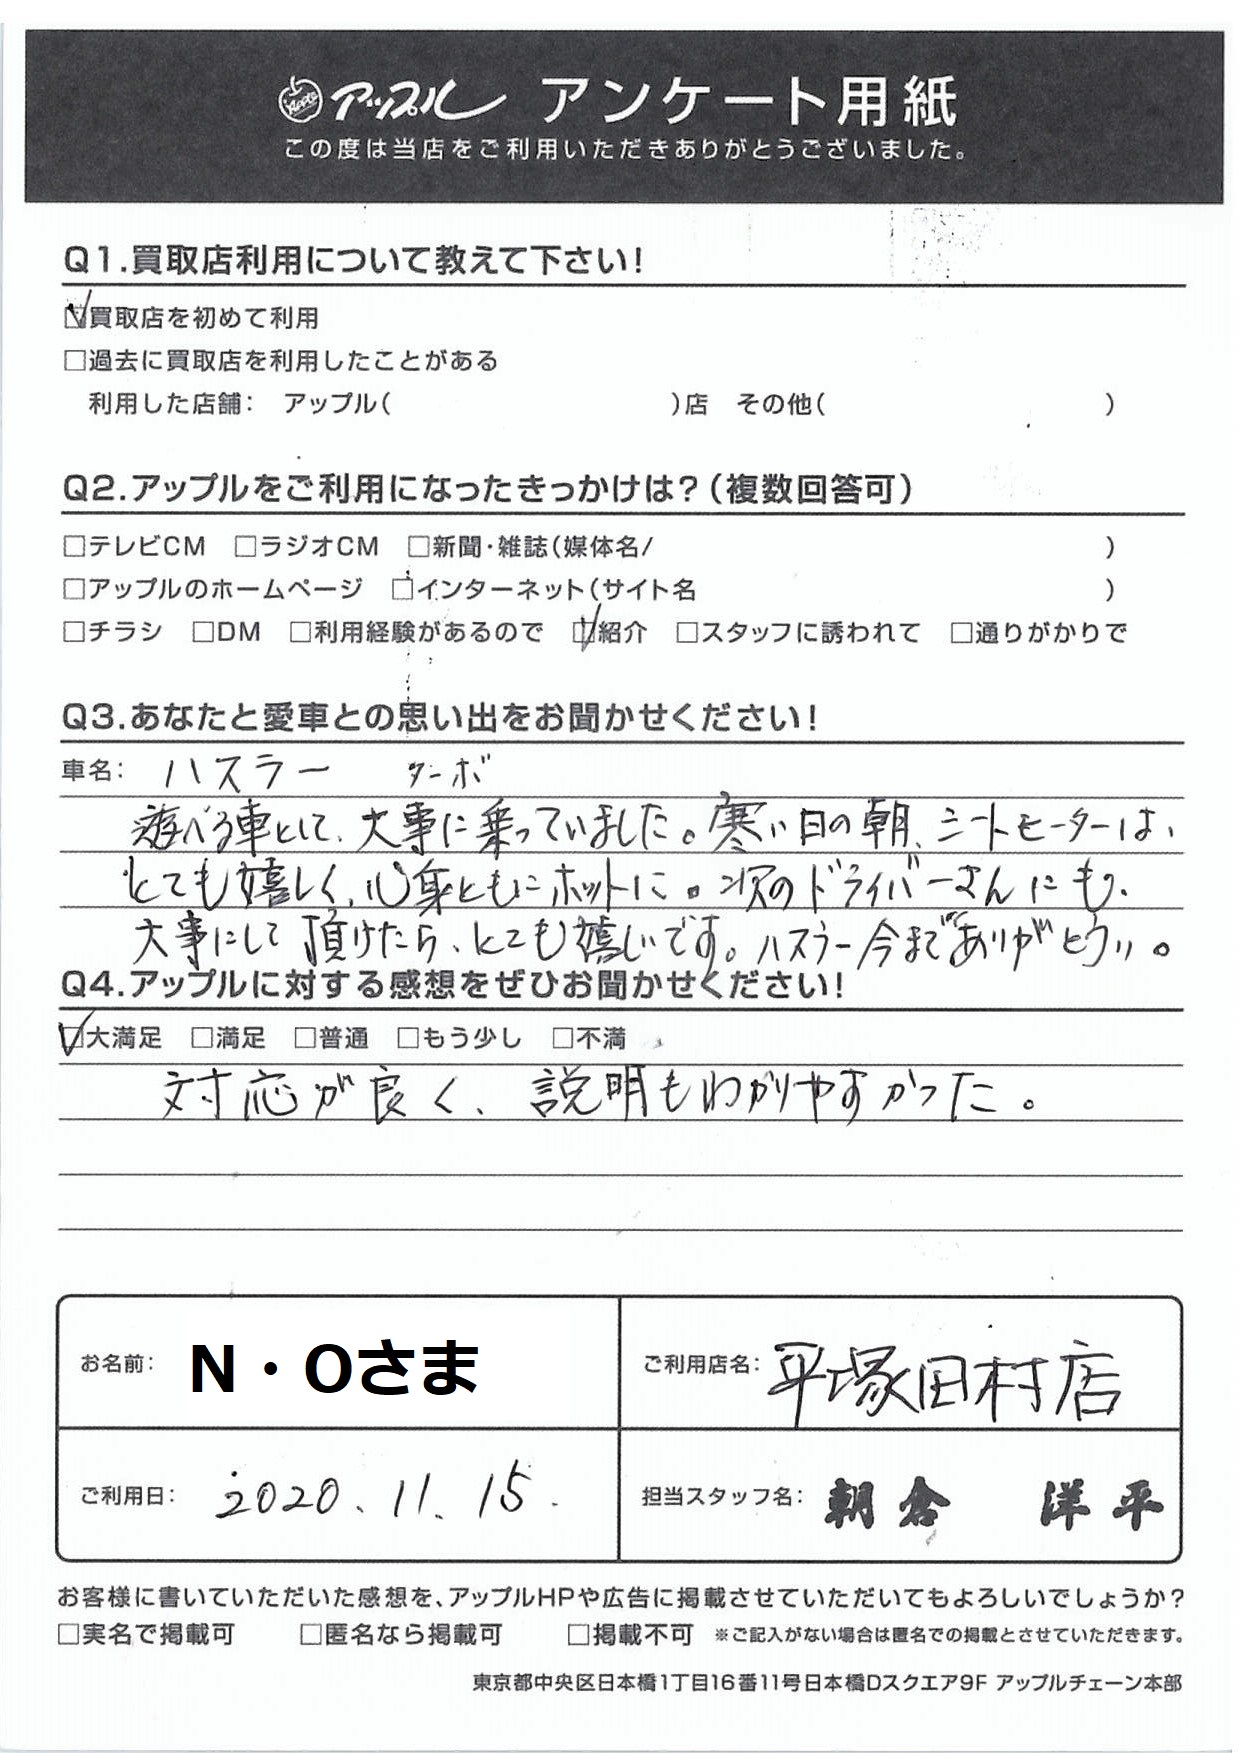 Apple アップル アンケート用紙
この度は当店をご利用いただきありがとうございました。
Q1.買取店利用について教えて下さい!
☑買取店を初めて利用
□過去に買取店を利用したことがある
利用した店舗: アップル( )店 その他( )
Q2.アップルをご利用になったきっかけは?(複数回答可)
□テレビCM □ラジオCM □新聞・雑誌(媒体名/ )
□アップルのホームページ □インターネット(サイト名 )
□チラシ □DM □利用経験があるので ☑紹介 □スタッフに誘われて □通りがかりで
Q3.あなたと愛車との思い出をお聞かせください!
車名: ハスラー ターボ
遊べる車として、大事に乗っていました。寒い日の朝、シートヒーターは、
とても嬉しく、心身ともにホットに。次のドライバーさんにも、
大事にして頂けたら、とても嬉しいです。ハスラー今までありがとう!!。
Q4.アップルに対する感想をぜひお聞かせください!
☑大満足 □満足 □普通 □もう少し □不満
対応が良く、説明もわかりやすかった。
お名前: N・Oさま
ご利用店名: 平塚田村店
ご利用日: 2020.11.15.
担当スタッフ名: 朝倉 洋平
お客様に書いていただいた感想を、アップルHPや広告に掲載させていただいてもよろしいでしょうか?
□実名で掲載可 □匿名なら掲載可 □掲載不可 ※ご記入がない場合は匿名での掲載とさせていただきます。
東京都中央区日本橋1丁目16番11号日本橋Dスクエア9F アップルチェーン本部